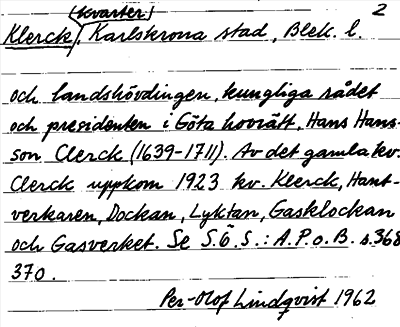 (Kvarter) 2
Klerck, Karlskrona stad, Blek. l.
och landshövdingen, kungliga rådet
och presidenten i Göta hovrätt, Hans Hans-
son Clerck (1639-1711). Av det gamla kv.
Clerck uppkom 1923 kv. Klerck, Hant-
verkaren, Dockan, Lyktan, Gasklockan
och Gasverket. Se S.Ö.S.: A.P.o.B. s.368
370.
Per-Olof Lindqvist 1962